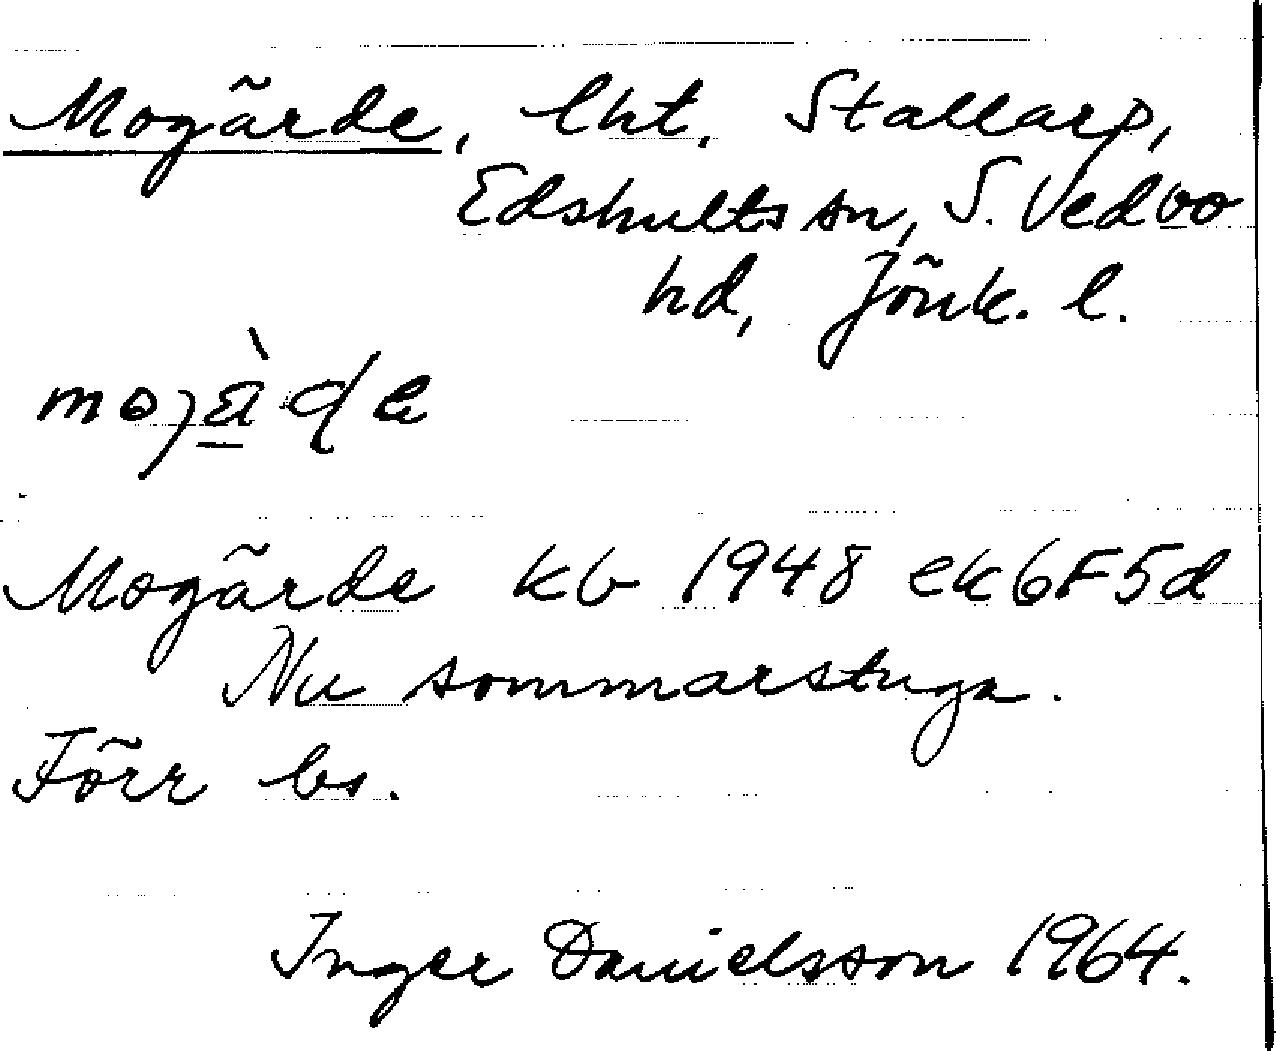 Mogärde, lht. Stallarp,
Edshults sn, S. Vedbo
hd, Jönk. l.
Mogärde kb 1948 ek 6F5d
Nu sommarstuga.
Förr bs.
Inger Danielsson 1964.